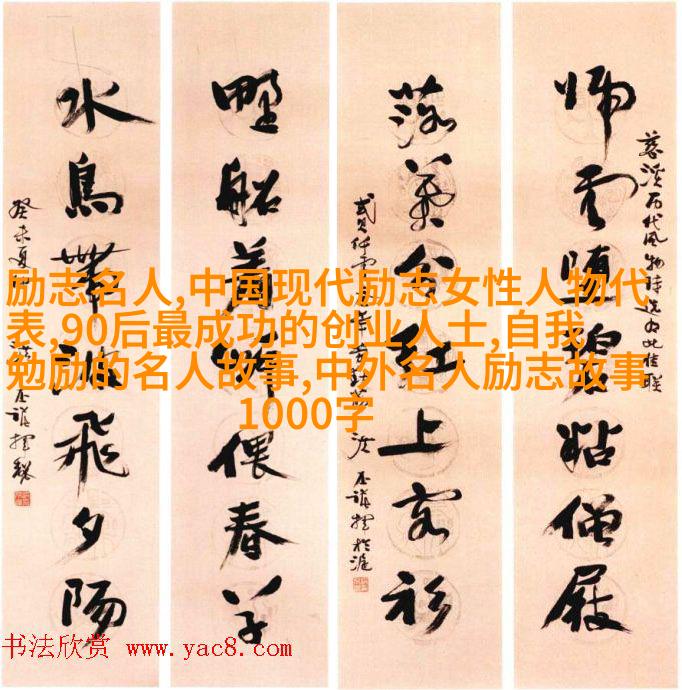 励志名人,中国现代励志女性人物代
表,90后最成功的创业人士,自我
勉励的名人故事,中外名人励志故事
1000字
歸雲堕碧粘僧屐
落葉分紅上客衫
野船着岸偎春草
水鳥帶波飛夕陽
癸未夏
书法欣赏 www.yac8.com